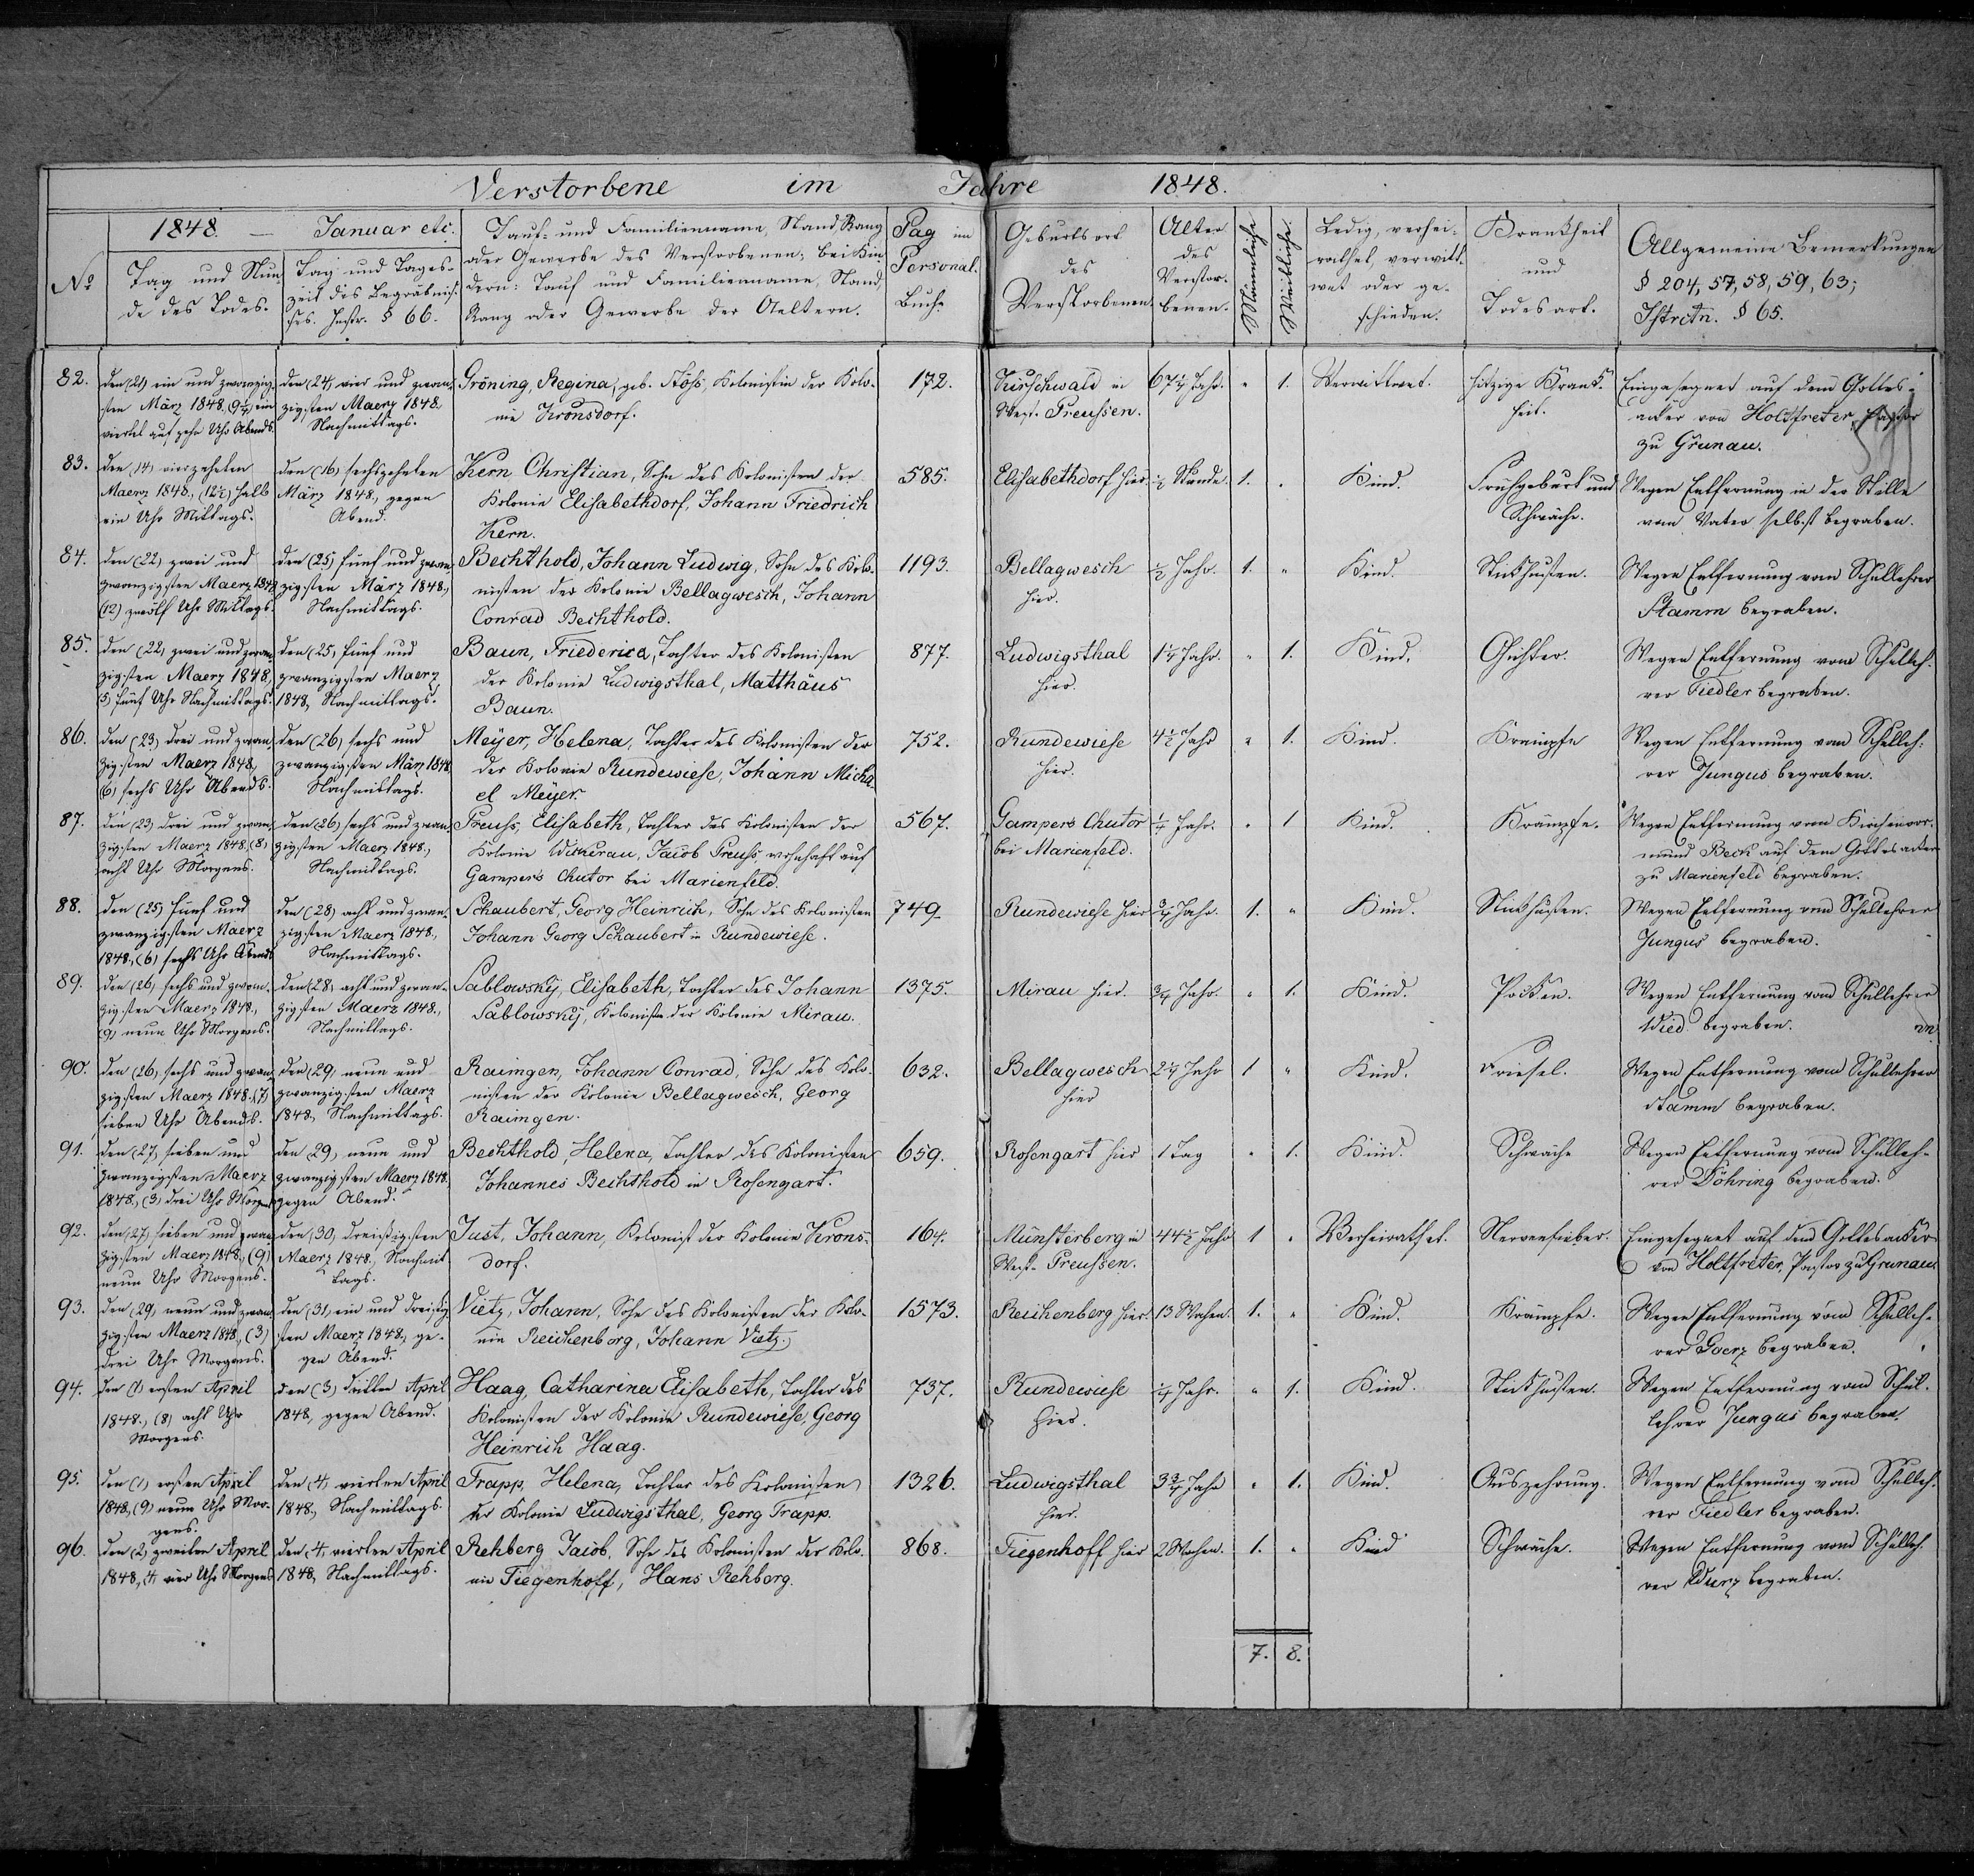 Verstorbene im Jahre 1848.
No
1848. — Januar etc.
Tag und Stun-
de des Todes.
Tag und Tages-
zeit des Begräbnis-
ses. Instr. § 66.
Tauf- und Familienname, Stand, Rang
oder Gewerbe des Verstorbenen; bei Kin-
dern: Tauf und Familienname, Stand,
Rang oder Gewerbe der Aeltern.
Pag im
Personal.
Buch.
Geburtsort
des
Verstorbenen.
Alter
des
Verstor-
benen.
Männliche
Weibliche
Ledig, verhei-
rathet, verwitt-
wet oder ge-
schieden.
Krankheit
und
Todesart.
Allgemeine Bemerkungen
§ 204, 57, 58, 59, 63;
Istrctn. § 65.
82.
den (21) ein und zwanzig-
sten März 1848, (9¼) ein
viertel auf zehn Uhr Abends.
den (24) vier und zwan-
zigsten Maerz 1848,
Nachmittags.
Gröning, Regina, geb. Stöss, Kolonistin der Kolo-
nie Kronsdorf.
172.
Kirschwald in
West-Preussen.
67¼ Jahr. " 1. Verwittwet.
hitzige Krank-
heit.
Eingesegnet auf dem Gottes-
acker von Holtfreter, Pastor
zu Grunau.
83.
den (14) vierzehnten
Maerz 1848, (12½) halb
ein Uhr Mittags.
den (16) sechszehnten
März 1848, gegen
Abend.
Kern Christian, Sohn des Kolonisten der
Kolonie Elisabethdorf, Johann Friedrich
Kern.
585.
Elisabethdorf hier. ½ Stunde. 1. " Kind.
Frühgeburt und
Schwäche.
Wegen Entfernung in der Stille
vom Vater selbst begraben.
84.
den (22) zwei und
zwanzigsten Maerz 1848,
(12) zwölf Uhr Mittags.
den (25) fünf und zwan-
zigsten März 1848,
Nachmittags.
Bechthold, Johann Ludwig, Sohn des Kolo-
nisten der Kolonie Bellagwesch, Johann
Conrad Bechthold.
1193.
Bellagwesch
hier.
½ Jahr. 1. " Kind.
Stickhusten.
Wegen Entfernung vom Schullehrer
Stamm begraben.
85.
den (22) zwei und zwan-
zigsten Maerz 1848,
(5) fünf Uhr Nachmittags.
den (25) fünf und
zwanzigsten Maerz
1848, Nachmittags.
Baun, Friederica, Tochter des Kolonisten
der Kolonie Ludwigsthal, Matthäus
Baun.
877.
Ludwigsthal
hier.
1¼ Jahr. " 1. Kind.
Gichter.
Wegen Entfernung vom Schulleh-
rer Fiedler begraben.
86.
den (23) drei und zwan-
zigsten Maerz 1848,
(6) sechs Uhr Abends.
den (26) sechs und
zwanzigsten März 1848,
Nachmittags.
Meyer, Helena, Tochter des Kolonisten der
der Kolonie Rundewiese, Johann Micha-
el Meyer.
752.
Rundewiese
hier.
4½ Jahr " 1. Kind.
Krämpfe
Wegen Entfernung vom Schulleh-
rer Jungus begraben.
87.
den (23) drei und zwan-
zigsten Maerz 1848. (8)
acht Uhr Morgens.
den (26) sechs und zwan-
zigsten Maerz 1848,
Nachmittags.
Preuss, Elisabeth, Tochter des Kolonisten der
Kolonie Wickerau, Jacob Preuss wohnhaft auf
Gampers Chutor bei Marienfeld.
567.
Gampers Chutor
bei Marienfeld.
¼ Jahr. " 1 Kind.
Krämpfe.
Wegen Entfernung vom Kirchenvor-
mund Beck auf dem Gottesacker
zu Marienfeld begraben.
88.
den (25) fünf und
zwanzigsten Maerz
1848, (6) sechs Uhr Abends
den (28) acht und zwan-
zigsten Maerz 1848,
Nachmittags.
Schaubert, Georg Heinrich, Sohn des Kolonisten
Johann Georg Schaubert in Rundewiese.
749.
Rundewiese hier ¾ Jahr. 1. " Kind.
Stickhusten.
Wegen Entfernung vom Schullehrer
Jungus begraben.
89.
den (26) sechs und zwan-
zigsten Maerz 1848,
(9) neun Uhr Morgens.
den (28) acht und zwan-
zigsten Maerz 1848,
Nachmittags.
Sablowsky, Elisabeth, Tochter des Johann
Sablowsky, Koloniste der Kolonie Mirau.
1375.
Mirau hier. ¾ Jahr. " 1. Kind.
Pocken.
Wegen Entfernung vom Schullehrer
Wied begraben.
90.
den (26) sechs und zwan-
zigsten Maerz 1848. (7)
sieben Uhr Abends.
den (29) neun und
zwanzigsten Maerz
1848, Nachmittags.
Raimgen, Johann Conrad, Sohn des Kolo-
nisten der Kolonie Bellagwesch, Georg
Raimgen.
632.
Bellagwesch
hier
2¼ Jahr 1 " Kind.
Friesel.
Wegen Entfernung vom Schullehrer
Stamm begraben.
91.
den (27) sieben und
zwanzigsten Maerz
1848, (3) drei Uhr Morgens
den (29) neun und
zwanzigsten Maerz 1848,
gegen Abend.
Bechthold, Helena, Tochter des Kolonisten
Johannes Bechthold in Rosengart.
659.
Rosengart hier 1 Tag " 1. Kind.
Schwäche
Wegen Entfernung vom Schulleh-
rer Döhring begraben.
92.
den (27) sieben und zwan-
zigsten Maerz 1848, (9)
neun Uhr Morgens.
den (30) dreißigsten
Maerz 1848, Nachmit-
tags.
Just, Johann, Kolonist der Kolonie Krons-
dorf.
164.
Münsterberg in
West-Preussen.
44½ Jahr 1 " Verheirathet.
Nervenfieber.
Eingesegnet auf dem Gottesacker
von Holtfreter, Pastor zu Grunau
93.
den (29) neun und zwan-
zigsten Maerz 1848, (3)
drei Uhr Morgens.
den (31) ein und dreißig-
sten Maerz 1848, ge-
gen Abend.
Vietz, Johann, Sohn des Kolonisten der Kolo-
nie Reichenberg, Johann Vietz.
1573.
Reichenberg hier. 13 Wochen. 1. " Kind.
Krämpfe.
Wegen Entfernung vom Schulleh-
rer Goerz begraben.
94.
den (1) ersten April
1848, (8) acht Uhr
Morgens.
den (3) dritten April
1848, gegen Abend.
Haag, Catharina Elisabeth, Tochter des
Kolonisten der Kolonie Rundewiese, Georg
Heinrich Haag.
737.
Rundewiese
hier.
¼ Jahr. " 1. Kind.
Stickhusten.
Wegen Entfernung vom Schul-
lehrer Jungus begraben.
95.
den (1) ersten April
1848, (9) neun Uhr Mor-
gens.
den (4) vierten April
1848, Nachmittags
Trapp, Helena, Tochter des Kolonisten
der Kolonie Ludwigsthal, Georg Trapp.
1326.
Ludwigsthal
hier.
3¾ Jahr " 1. Kind.
Auszehrung.
Wegen Entfernung vom Schulleh-
rer Fiedler begraben.
96.
den (2) zweiten April
1848, (4) vier Uhr Morgens
den (4) vierten April
1848, Nachmittags.
Rehberg Jacob, Sohn des Kolonisten der Kolo-
nie Tiegenhoff, Hans Rehberg.
868.
Tiegenhoff hier 2 Wochen. 1. " Kind
Schwäche.
Wegen Entfernung vom Schulleh-
rer Wierz begraben.
7. 8.